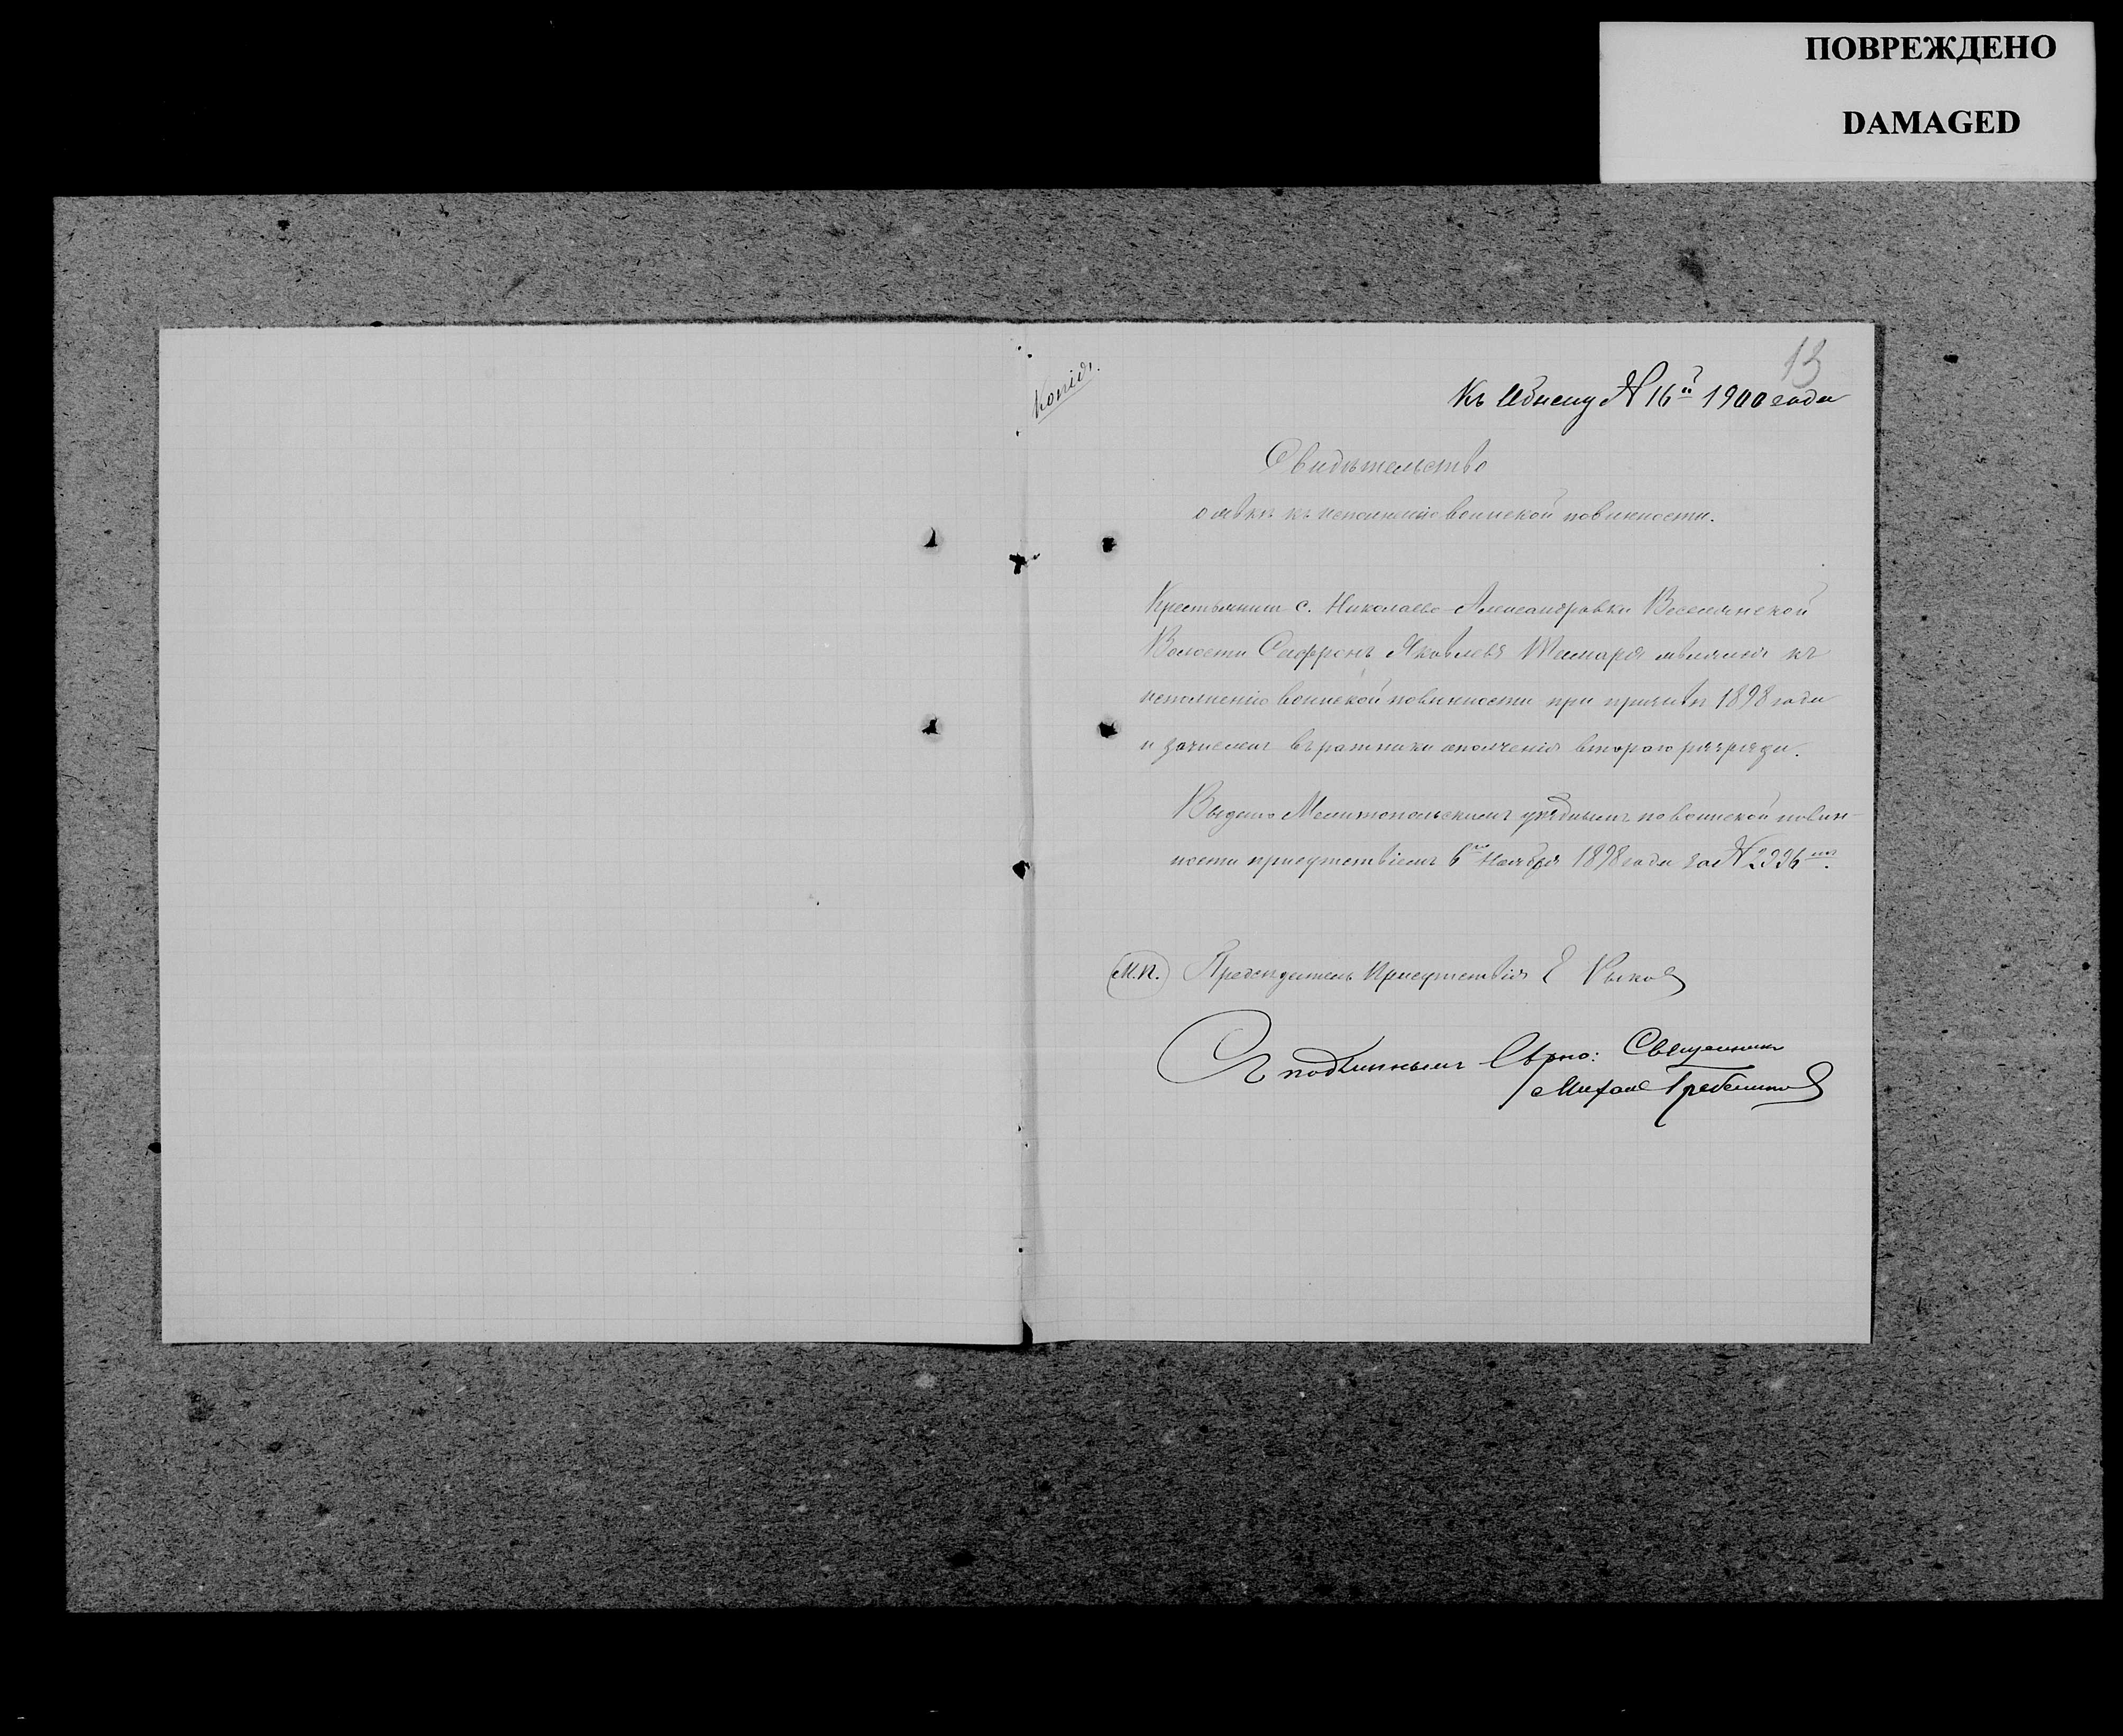 ПОВРЕЖДЕНО
DAMAGED
13
Копія.
Къ Обыску № 16й 1900 года
Свидѣтельство
о явкѣ къ исполненію воинской повинности.
Крестьянинъ с. Николаево-Александровки Веселянской
Волости Сафронъ Яковлевъ являлся къ
исполненію воинской повинности при призывѣ 1898 года
и зачисленъ въ ратники ополченія второго разряда.
Выдано Мелитопольскимъ уѣзднымъ по воинской повин-
ности присутствіемъ 6го Ноября 1898 года за №
М.П. Предсѣдатель Присутствія Е Рыковъ
Съ подлиннымъ вѣрно: Священникъ
Михаилъ